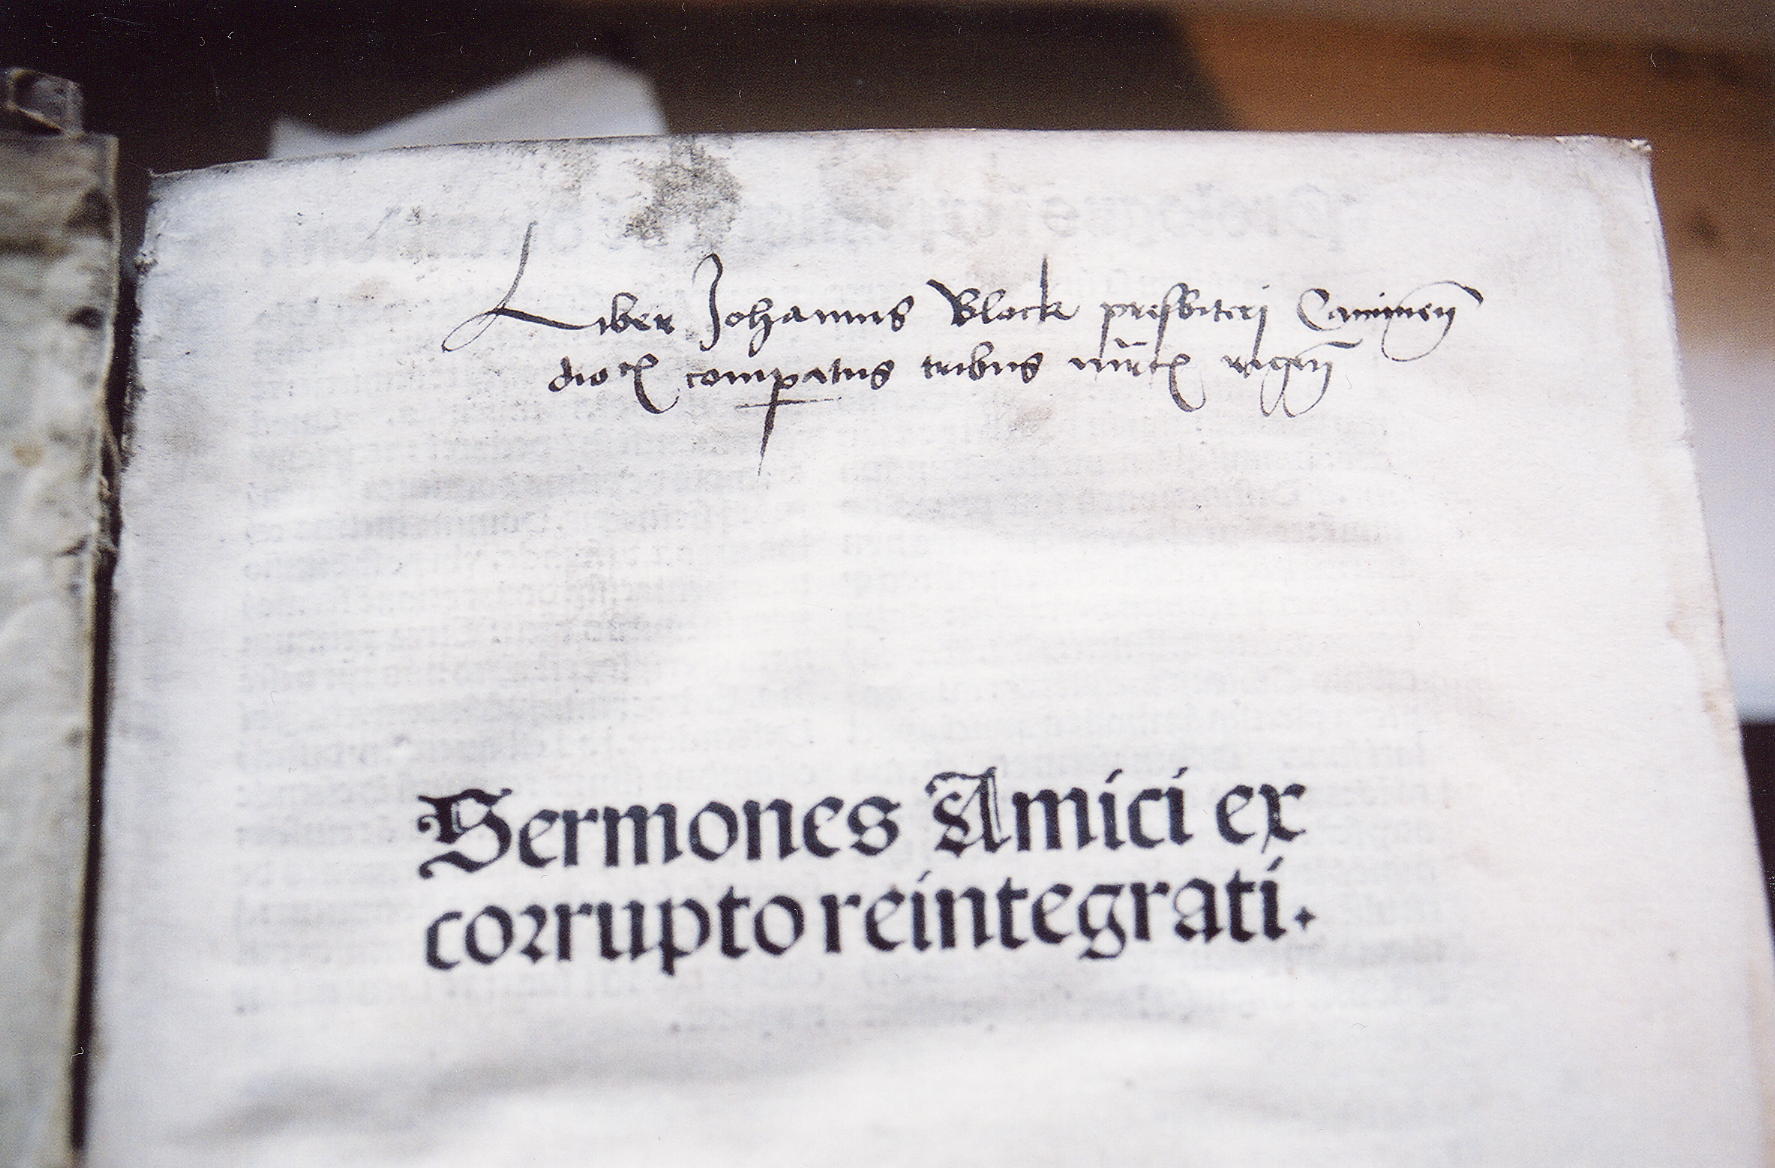 Liber Johannis Block presbiteri Caminen
dioc comparatus tribus marc rigen
Sermones Amici ex
corrupto reintegrati.